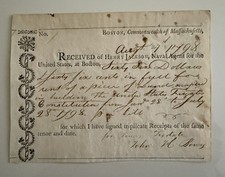 No.
BOSTON, Commonwealth of Massachusetts,
Augt 9 1798
RECEIVED of HENRY JACKSON, Naval Agent for the
United States, at Boston, Sixty five Dollars
sixty six cents, in full for
rent of a piece of Land
in building the United States Frigate
Constitution from Jany 28th to July
28th 1798.
for which I have signed duplicate Receipts of the same
tenor and date,
John